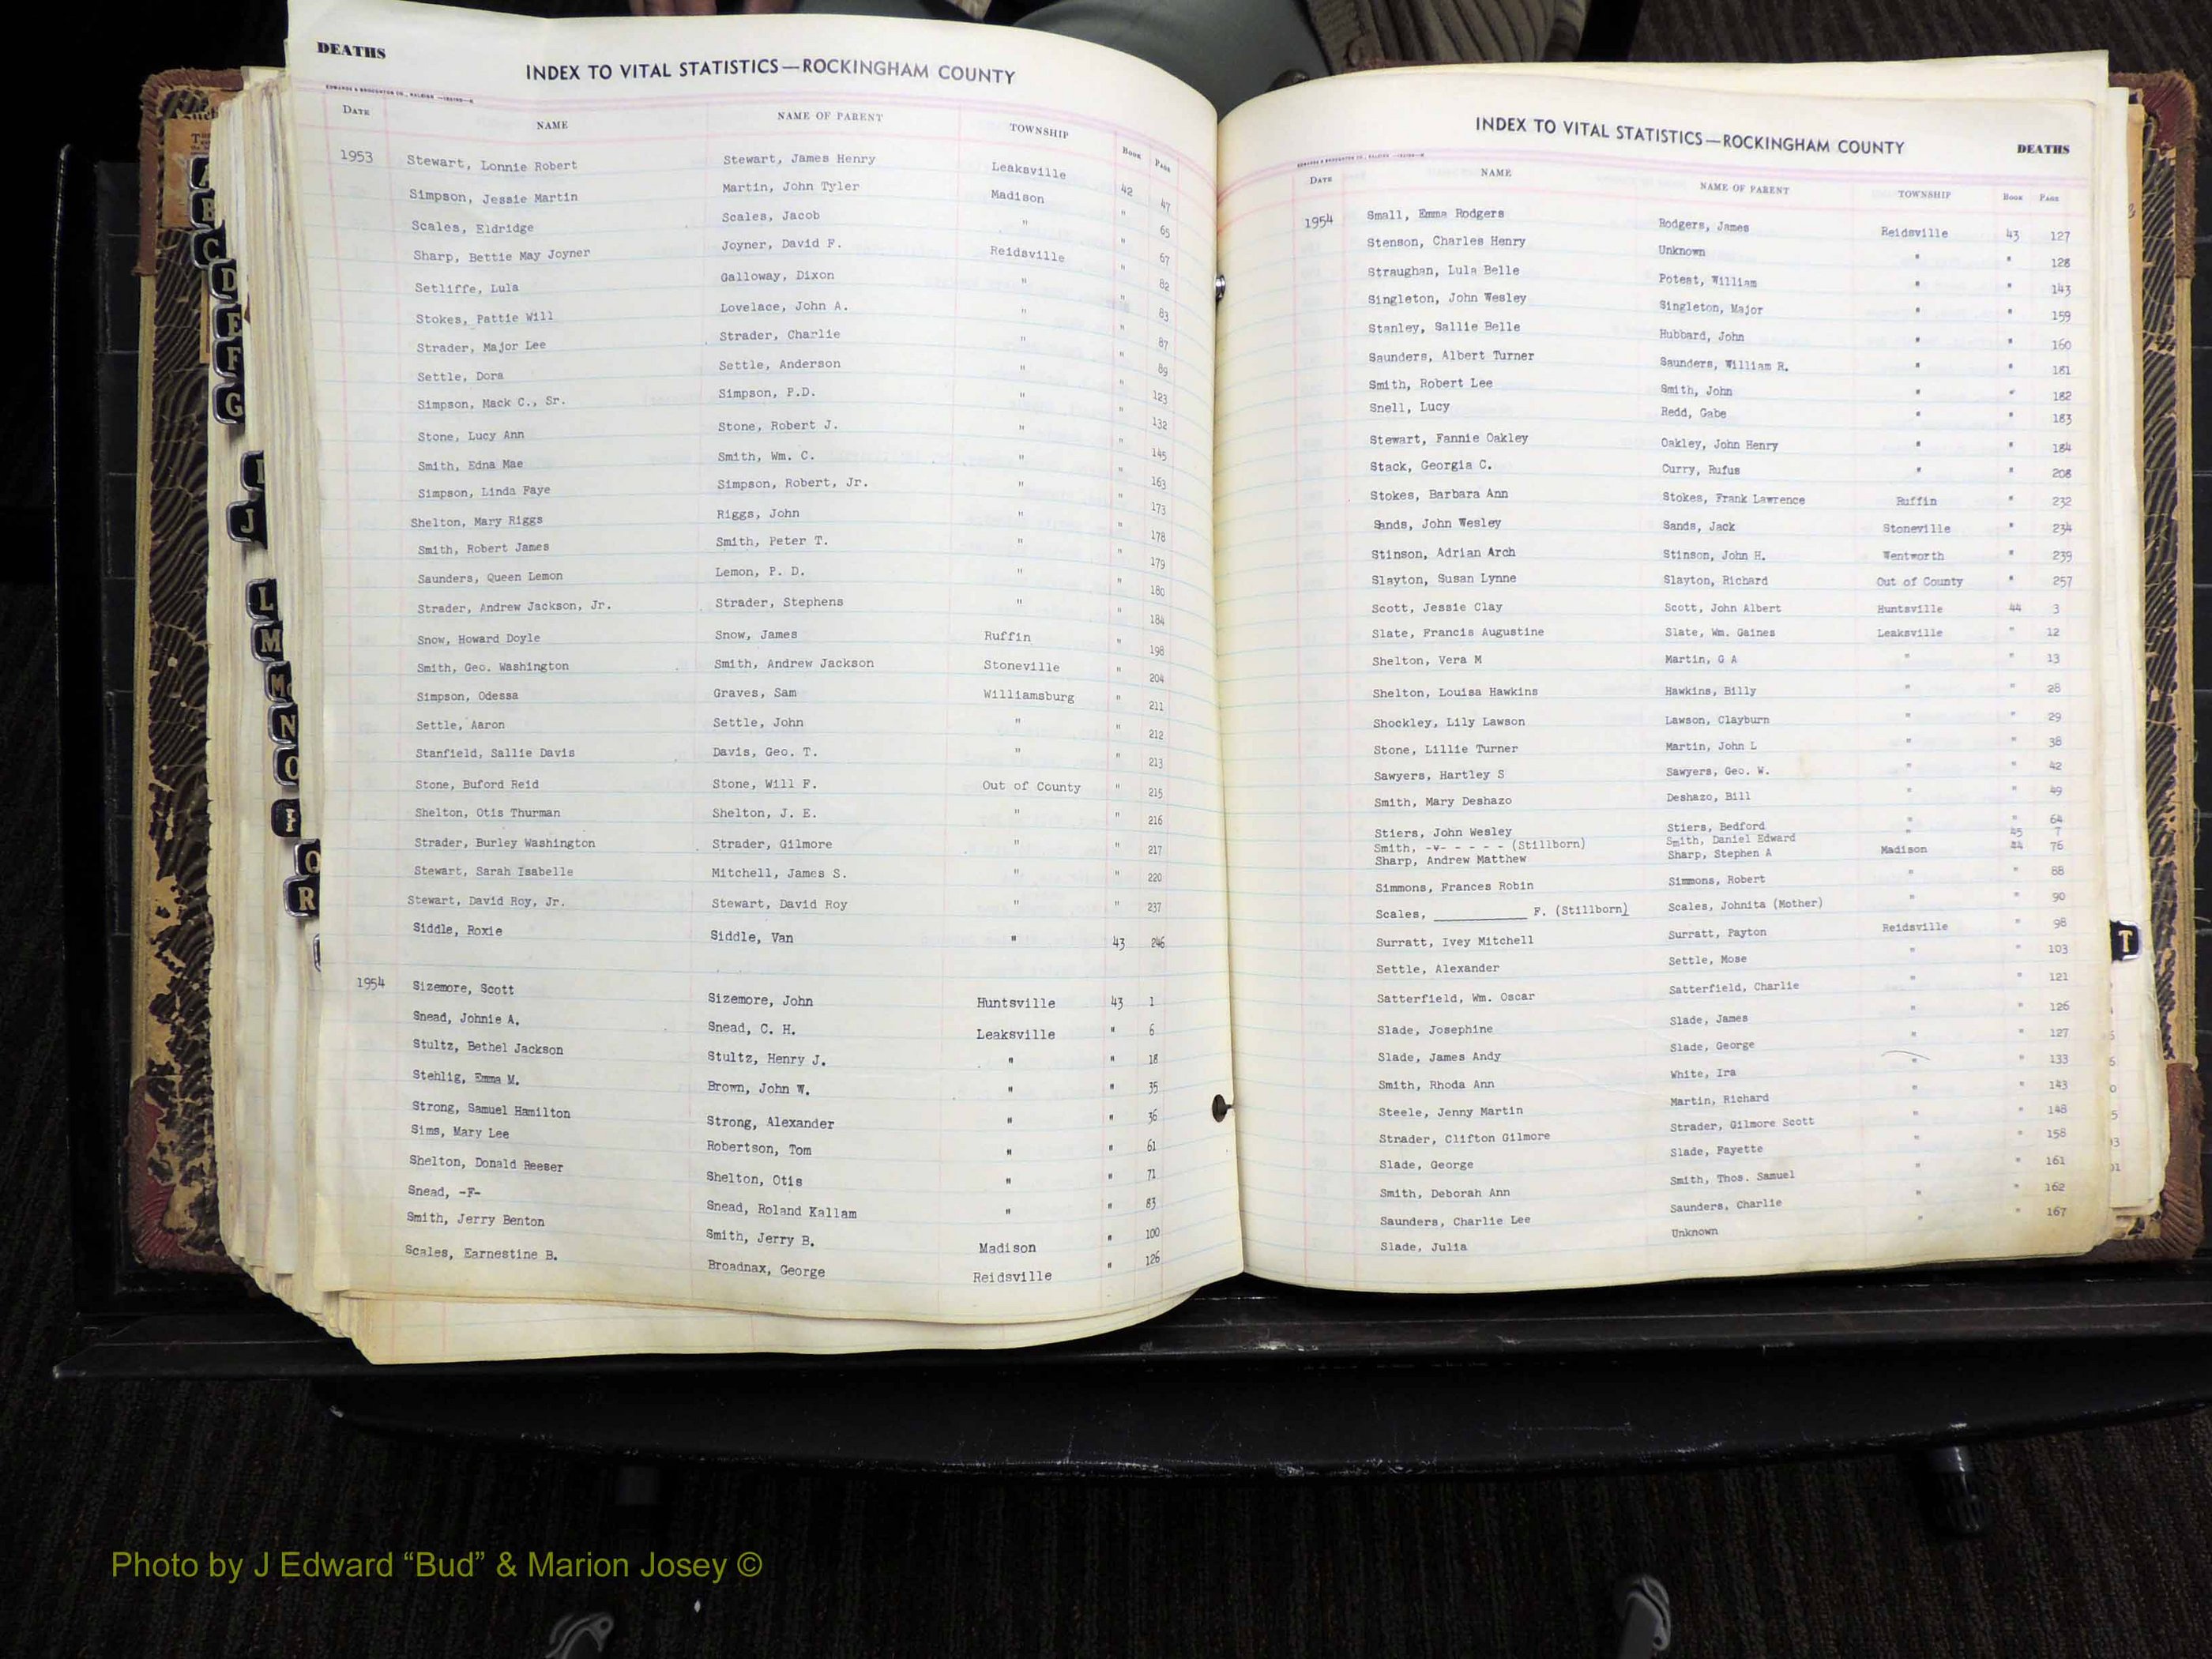 DEATHS
INDEX TO VITAL STATISTICS—ROCKINGHAM COUNTY
EDWARDS & BROUGHTON CO., RALEIGH
DATE NAME NAME OF PARENT TOWNSHIP Book Page
1953 Stewart, Lonnie Robert Stewart, James Henry Leaksville 42 47
Simpson, Jessie Martin Martin, John Tyler Madison " 65
Scales, Eldridge Scales, Jacob " " 67
Sharp, Bettie May Joyner Joyner, David F. Reidsville " 82
Setliffe, Lula Galloway, Dixon " " 83
Stokes, Pattie Will Lovelace, John A. " " 87
Strader, Major Lee Strader, Charlie " " 89
Settle, Dora Settle, Anderson " " 123
Simpson, Mack C., Sr. Simpson, P.D. " " 132
Stone, Lucy Ann Stone, Robert J. " " 145
Smith, Edna Mae Smith, Wm. C. " " 163
Simpson, Linda Faye Simpson, Robert, Jr. " " 173
Shelton, Mary Riggs Riggs, John " " 178
Smith, Robert James Smith, Peter T. " " 179
Saunders, Queen Lemon Lemon, P. D. " " 180
Strader, Andrew Jackson, Jr. Strader, Stephens " " 184
Snow, Howard Doyle Snow, James Ruffin " 198
Smith, Geo. Washington Smith, Andrew Jackson Stoneville " 204
Simpson, Odessa Graves, Sam Williamsburg " 211
Settle, Aaron Settle, John " " 212
Stanfield, Sallie Davis Davis, Geo. T. " " 213
Stone, Buford Reid Stone, Will F. Out of County " 215
Shelton, Otis Thurman Shelton, J. E. " " 216
Strader, Burley Washington Strader, Gilmore " " 217
Stewart, Sarah Isabelle Mitchell, James S. " " 220
Stewart, David Roy, Jr. Stewart, David Roy " " 237
Siddle, Roxie Siddle, Van " 43 246
1954 Sizemore, Scott Sizemore, John Huntsville 43 1
Snead, Johnie A. Snead, C. H. Leaksville " 6
Stultz, Bethel Jackson Stultz, Henry J. " " 18
Stehlig, Emma M. Brown, John W. " " 35
Strong, Samuel Hamilton Strong, Alexander " " 36
Sims, Mary Lee Robertson, Tom " " 61
Shelton, Donald Reeser Shelton, Otis " " 71
Snead, -F- Snead, Roland Kallam " " 83
Smith, Jerry Benton Smith, Jerry B. Madison " 100
Scales, Earnestine B. Broadnax, George Reidsville " 126
INDEX TO VITAL STATISTICS—ROCKINGHAM COUNTY
DEATHS
DATE NAME NAME OF PARENT TOWNSHIP Book Page
1954 Small, Emma Rodgers Rodgers, James Reidsville 43 127
Stenson, Charles Henry Unknown " " 128
Straughan, Lula Belle Poteat, William " " 143
Singleton, John Wesley Singleton, Major " " 159
Stanley, Sallie Belle Hubbard, John " " 160
Saunders, Albert Turner Saunders, William R. " " 181
Smith, Robert Lee Smith, John " " 182
Snell, Lucy Redd, Gabe " " 183
Stewart, Fannie Oakley Oakley, John Henry " " 184
Stack, Georgia C. Curry, Rufus " " 208
Stokes, Barbara Ann Stokes, Frank Lawrence Ruffin " 232
Sands, John Wesley Sands, Jack Stoneville " 234
Stinson, Adrian Arch Stinson, John H. Wentworth " 239
Slayton, Susan Lynne Slayton, Richard Out of County " 257
Scott, Jessie Clay Scott, John Albert Huntsville 44 3
Slate, Francis Augustine Slate, Wm. Gaines Leaksville " 12
Shelton, Vera M Martin, G A " " 13
Shelton, Louisa Hawkins Hawkins, Billy " " 28
Shockley, Lily Lawson Lawson, Clayburn " " 29
Stone, Lillie Turner Martin, John L " " 38
Sawyers, Hartley S Sawyers, Geo. W. " " 42
Smith, Mary Deshazo Deshazo, Bill " " 49
Stiers, John Wesley Stiers, Bedford " " 64
Smith, -v- - - - - (Stillborn) Smith, Daniel Edward " 45 7
Sharp, Andrew Matthew Sharp, Stephen A Madison 44 76
Simmons, Frances Robin Simmons, Robert " " 88
Scales, __________ F. (Stillborn) Scales, Johnita (Mother) " " 90
Surratt, Ivey Mitchell Surratt, Payton Reidsville " 98
Settle, Alexander Settle, Mose " " 103
Satterfield, Wm. Oscar Satterfield, Charlie " " 121
Slade, Josephine Slade, James " " 126
Slade, James Andy Slade, George " " 127
Smith, Rhoda Ann White, Ira " " 133
Steele, Jenny Martin Martin, Richard " " 143
Strader, Clifton Gilmore Strader, Gilmore Scott " " 148
Slade, George Slade, Fayette " " 158
Smith, Deborah Ann Smith, Thos. Samuel " " 161
Saunders, Charlie Lee Saunders, Charlie " " 162
Slade, Julia Unknown " " 167
A
B
C
D
E
F
G
I
J
L
M
Mc
N
O
P
Q
R
T
Photo by J Edward “Bud” & Marion Josey ©